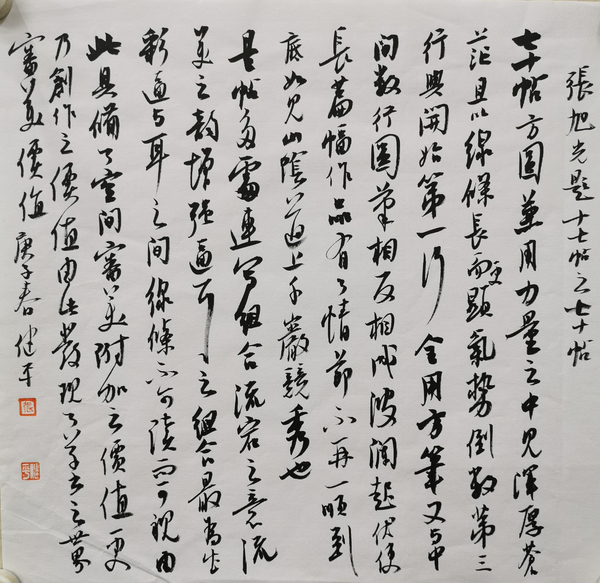 張旭光題十七帖之七十帖
七十帖方圓並用力量之中見渾厚蒼
茫且以線條長而更顯氣勢倒數第三
行與開始第一行全用方筆又与中
間數行圓筆相反相成波瀾起伏使
長篇幅作品有了情節不再一順到
底如見山陰道上千巖競秀也
是帖多處連寫組合流宕之意流
美之韵增强 之組合最為出
彩 与耳之間線條不可 而可視由
此具備了空間審美附加之價值更
乃創作之價值由此發現了草書之世界
審美價值 庚子春 健平